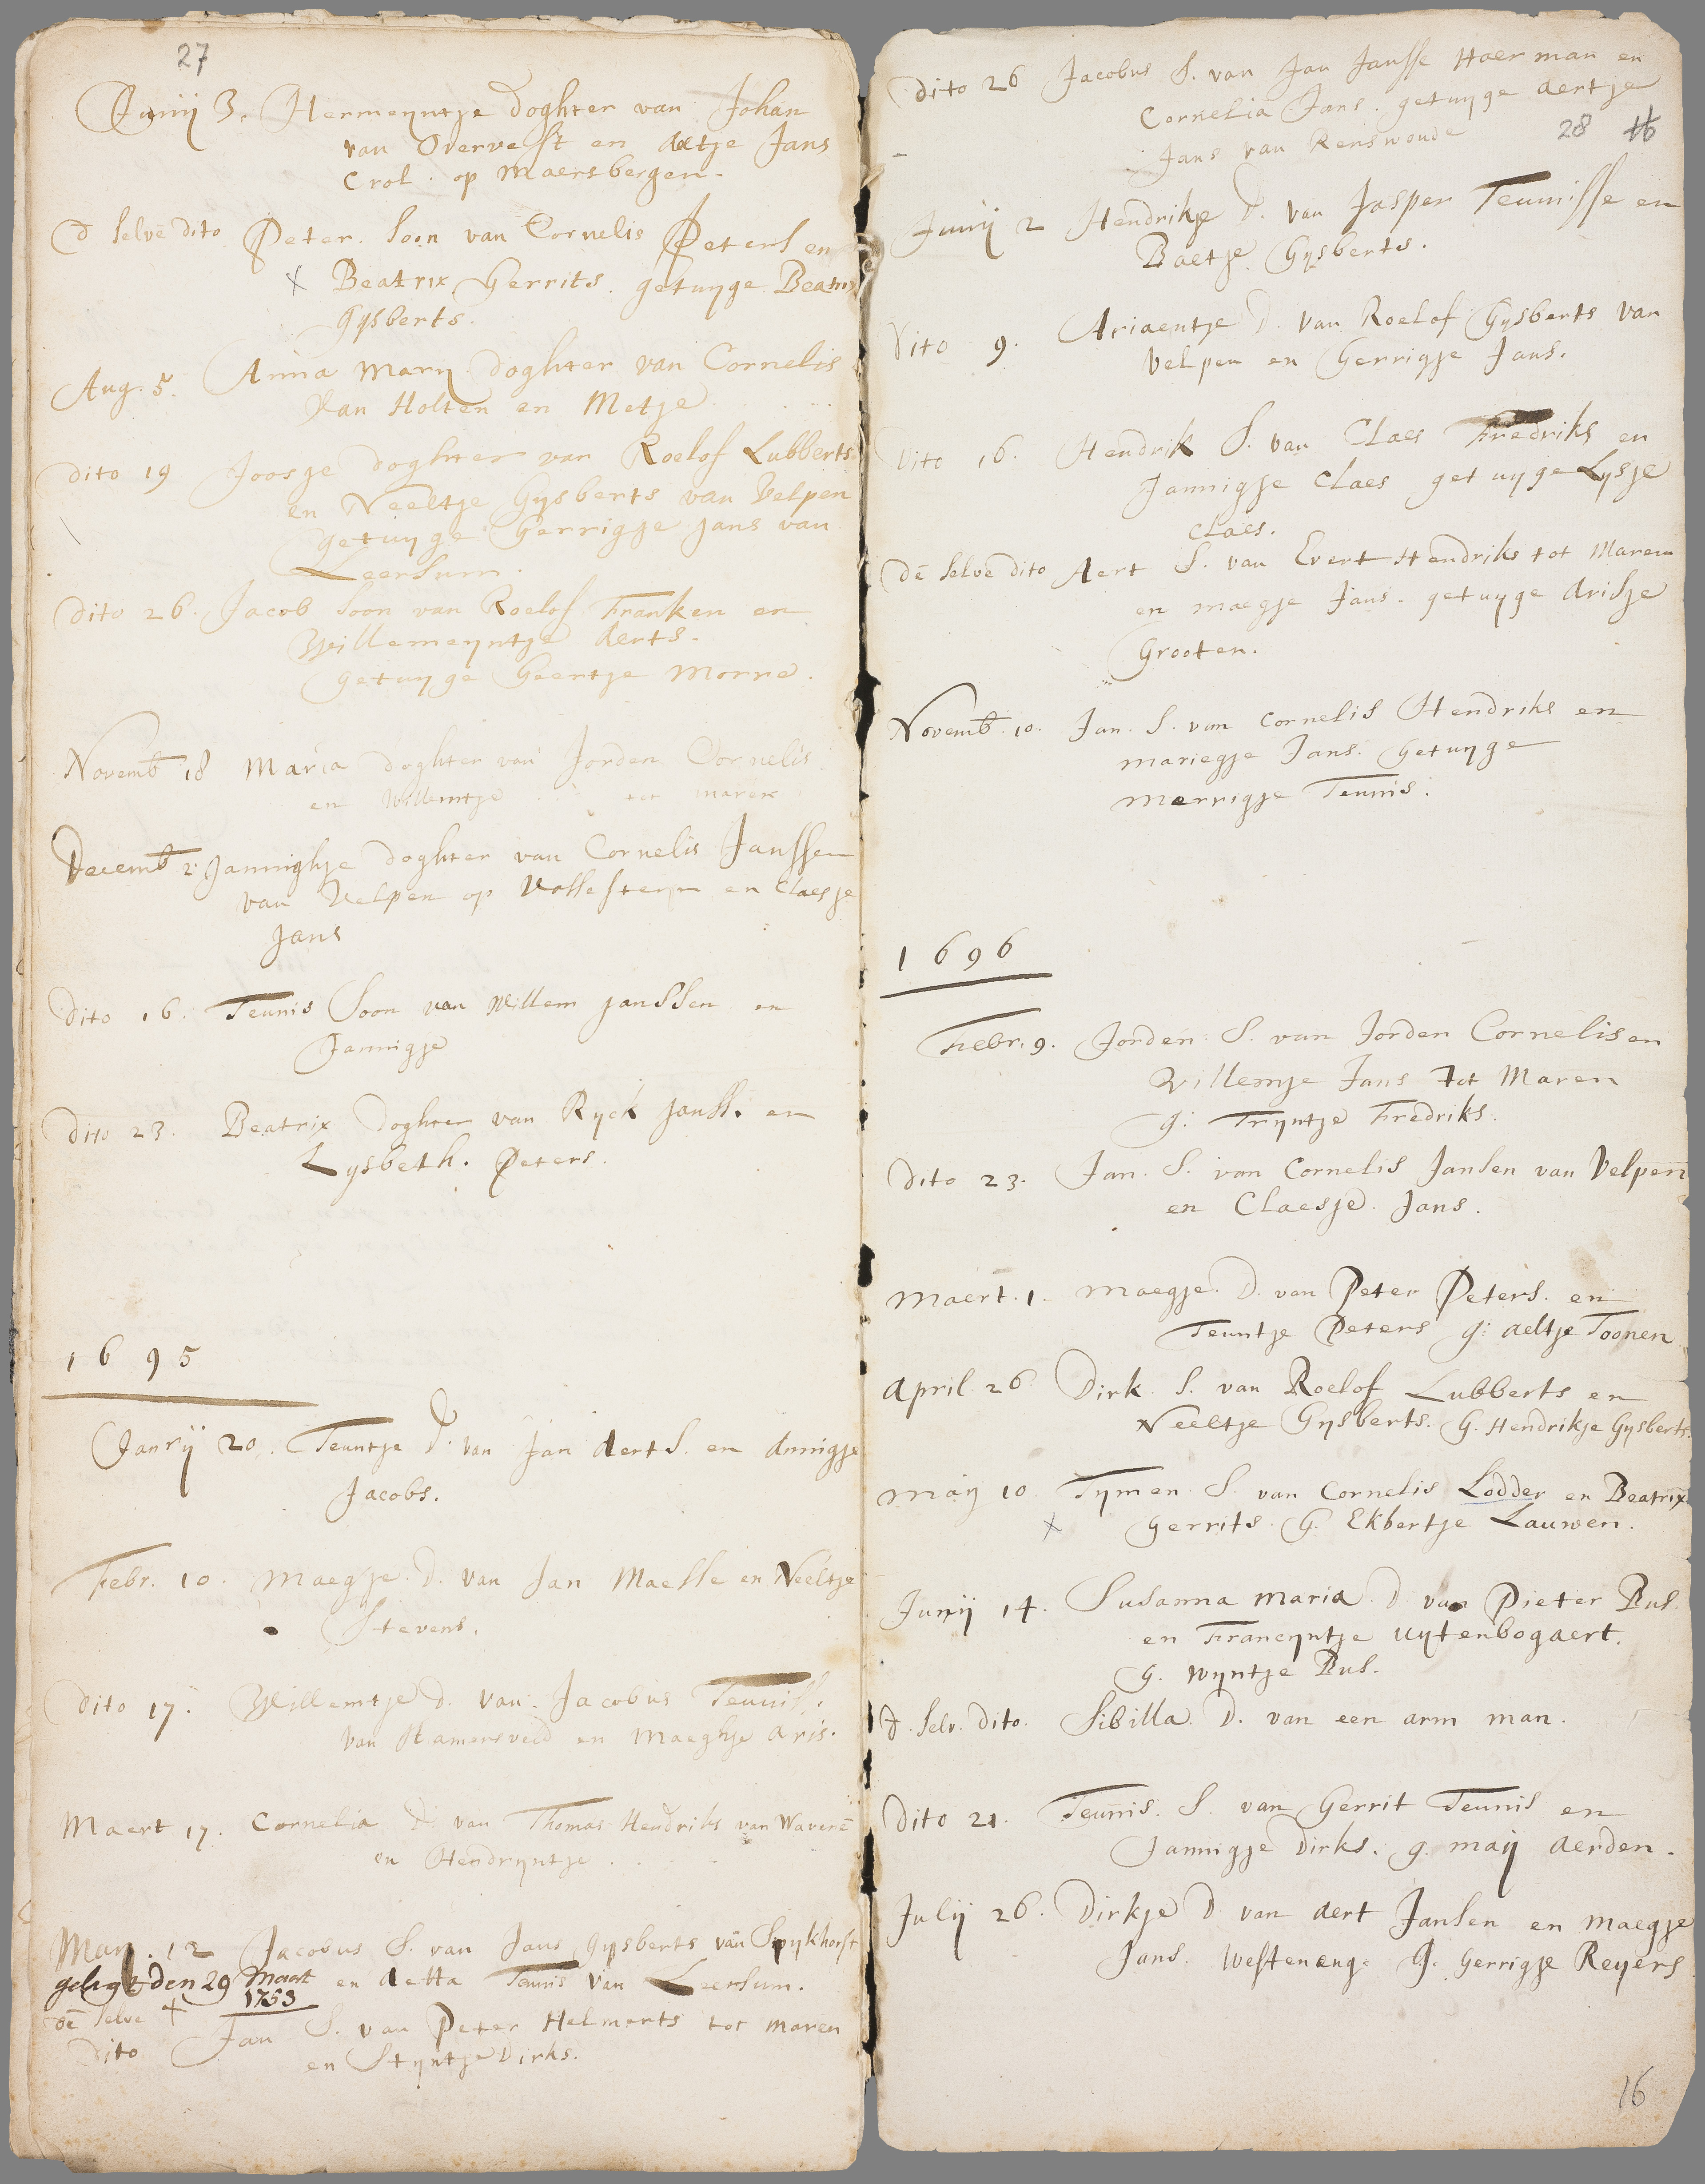 27
Junij 3. Hermeyntje doghter van Johan
van Overvest en Aetje Jans
Crol. op Maersbergen.
d selvē dito Peter. Soon van Cornelis Peters en
x Beatrix Gerrits. getuyge Beatrix
Gysberts.
Aug. 5. Anna Mary doghter van Cornelis
van Holten en Metje
dito 19 Joosje doghter van Roelof Lubberts
en Neeltje Gysberts van Velpen
getuyge Gerrigje Jans van
Leersum.
dito 26. Jacob Soon van Roelof Franken en
Willemeyntje Aerts.
getuyge Geertje Morre.
Novemb 18 Maria doghter van Jorden Cornelis
en Willemtje . . . tot maren.
Decemb 2. Jannighje doghter van Cornelis Janssen
van Velpen op Vollesteyn en Claesje
Jans
dito 16. Teunis Soon van Willem Janssen en
Jannigje
dito 23. Beatrix doghter van Ryck Janss. en
Lysbeth. Peters.
1695
Janrij 20. Teuntje D. van Jan Aerts. en Annigje
Jacobs.
Febr. 10. Maegje. D. van Jan Maesse en Neeltje
Stevens.
dito 17. Willemtje d. van. Jacobus Teuniss.
van Hamersveld en Maeghje Aris.
Maert 17. Cornelia D. van Thomas Hendriks van Waverē
en Hendryntje . . . .
May. 12 Jacobus S. van Jans Gysberts van Spykhorst
geligt den 29 Maart en Aetta Teunis van Leersum.
1753
dē selve + Jan S. van Peter Helmerts tot maren
dito en Styntje Dirks.
dito 26 Jacobus S. van Jan Jansse Haerman en
Cornelia Jans. getuyge Aertje
Jans van Renswoude
28 16
Junij 2 Hendrikje D. van Jasper Teunisse en
Baetje Gysberts.
dito 9. Ariaentje D. van Roelof Gysberts van
Velpen en Gerrigje Jans.
dito 16. Hendrik S. van Claes Fredriks en
Jannigje Claes getuyge Lysje
Claes.
dē selvē dito Aert S. van Evert Hendriks tot Maren
en maegje Jans. getuyge Arisje
Grooten.
Novemb. 10. Jan. S. van Cornelis Hendriks en
mariegje Jans. Getuyge
Merrigje Teunis.
1696
Febr. 9. Jorden S. van Jorden Cornelis en
Willemje Jans tot Maren
g: Tryntje Fredriks.
dito 23. Jan. S. van Cornelis Jansen van Velpen
en Claesje. Jans.
Maert. 1. Maegje. D. van Peter Peters. en
Teuntje Peters g: Aeltje Toonen
April 26. Dirk. S. van Roelof Lubberts en
Neeltje Gysberts. G. Hendrikje Gysberts.
May 10 Tymen S. van Cornelis Lodder en Beatrix
x Gerrits. G. Ekbertje Lauwen.
Junij 14. Susanna Maria. D van Pieter Bus.
en Francyntje Uytenbogaert.
G. Wyntje Bus.
d. selv. dito. Sibilla. D. van een arm man.
dito 21. Teunis. S. van Gerrit Teunis en
Jannigje Dirks. g. Maij Aerden.
Julij 26. Dirkje D van Aert Jansen en Maegje
Jans. Westeneng. G. Gerrigje Reyers
16